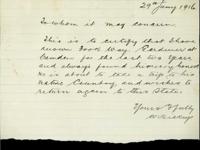 29th Jany 1916
To whom it may concern
This is to certify that I have
known Foon Way Gardener at
Camden for the last two years
and always found him very honest
He is about to take a trip to his
native Country, and wishes to
return again to this State.
Yours Fflly